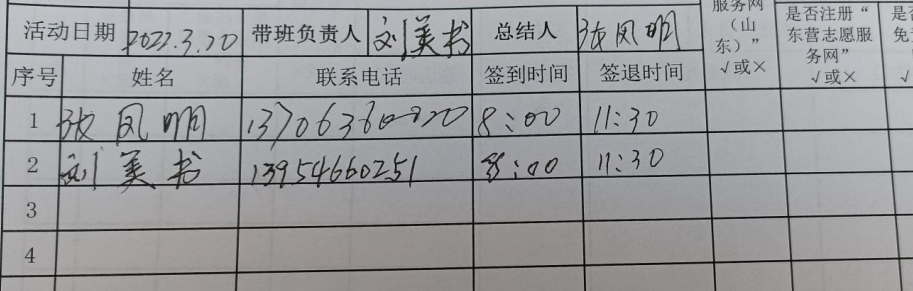 服务网
（山
东）”
√或×
是否注册“
东营志愿服
务网”
√或×
是否
免
√
活动日期 2022.3.20 带班负责人 刘美书 总结人 张凤明
序号 姓名 联系电话 签到时间 签退时间
1 张凤明 8:00 11:30
2 刘美书 13954660251 8:00 11:30
3
4